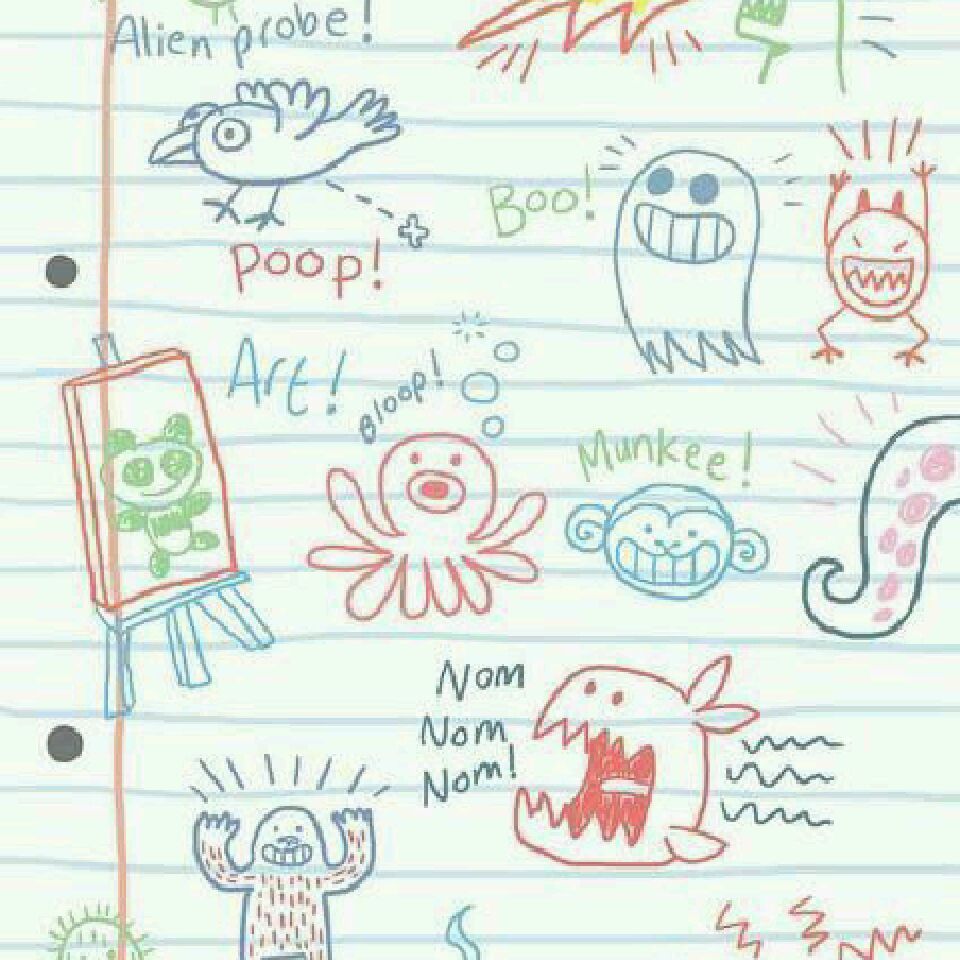 Alien probe!
Boo!
Poop!
Art!
Bloop!
Munkee!
Nom
Nom
Nom!